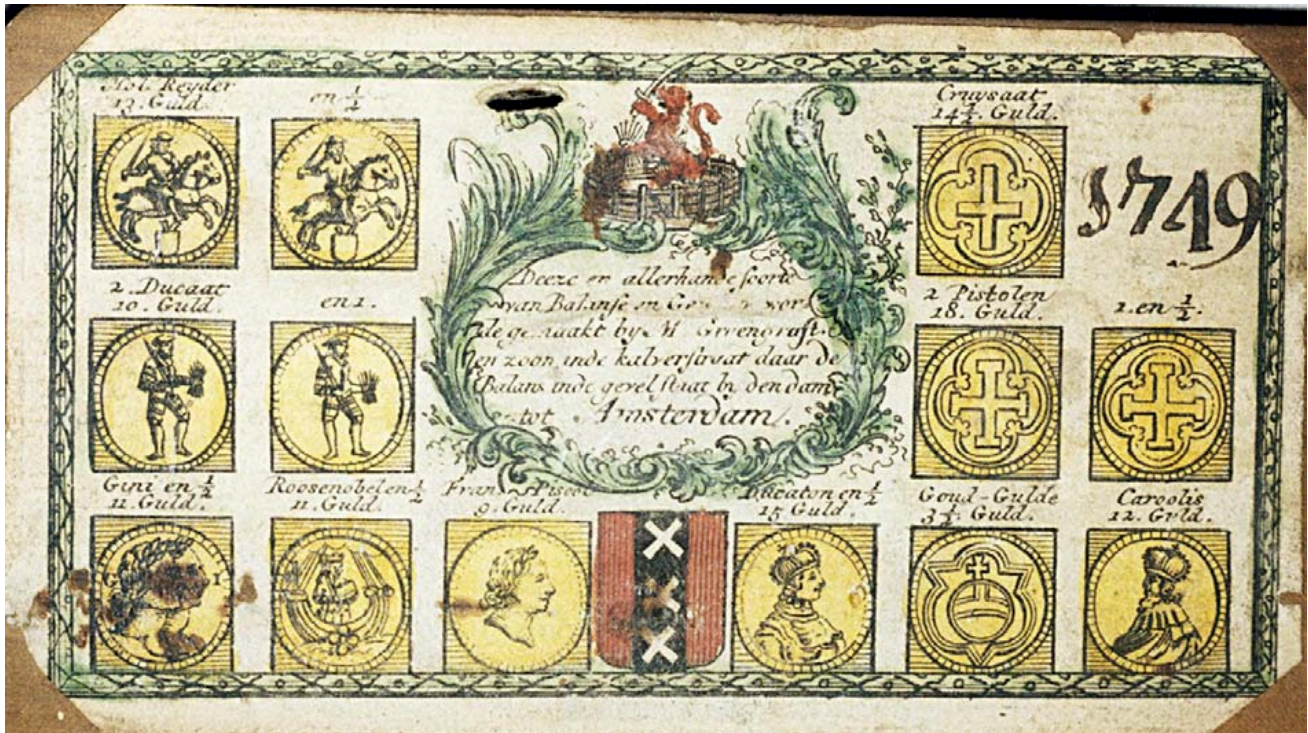 Hol. Reyder
13. Guld.
en 1/2
Cruysaat
14 1/2. Guld.
1749
2. Ducaat
10. Guld.
en 1.
Deeze en allerhande soorte
van Balanse en vor
de gemaakt by M Groengraft
en zoon inde kalverstraat daar de
Balans inde gevel staat by den dam
tot Amsterdam.
2 Pistolen
18. Guld.
1. en 1/2.
Gini en 1/2
11. Guld.
Roosenobel en 1/2
11. Guld.
Frans
9. Guld.
Ducaton en 1/2
15 Guld.
Goud-Gulde
3 1/2. Guld.
Caroolis
12. Gvld.